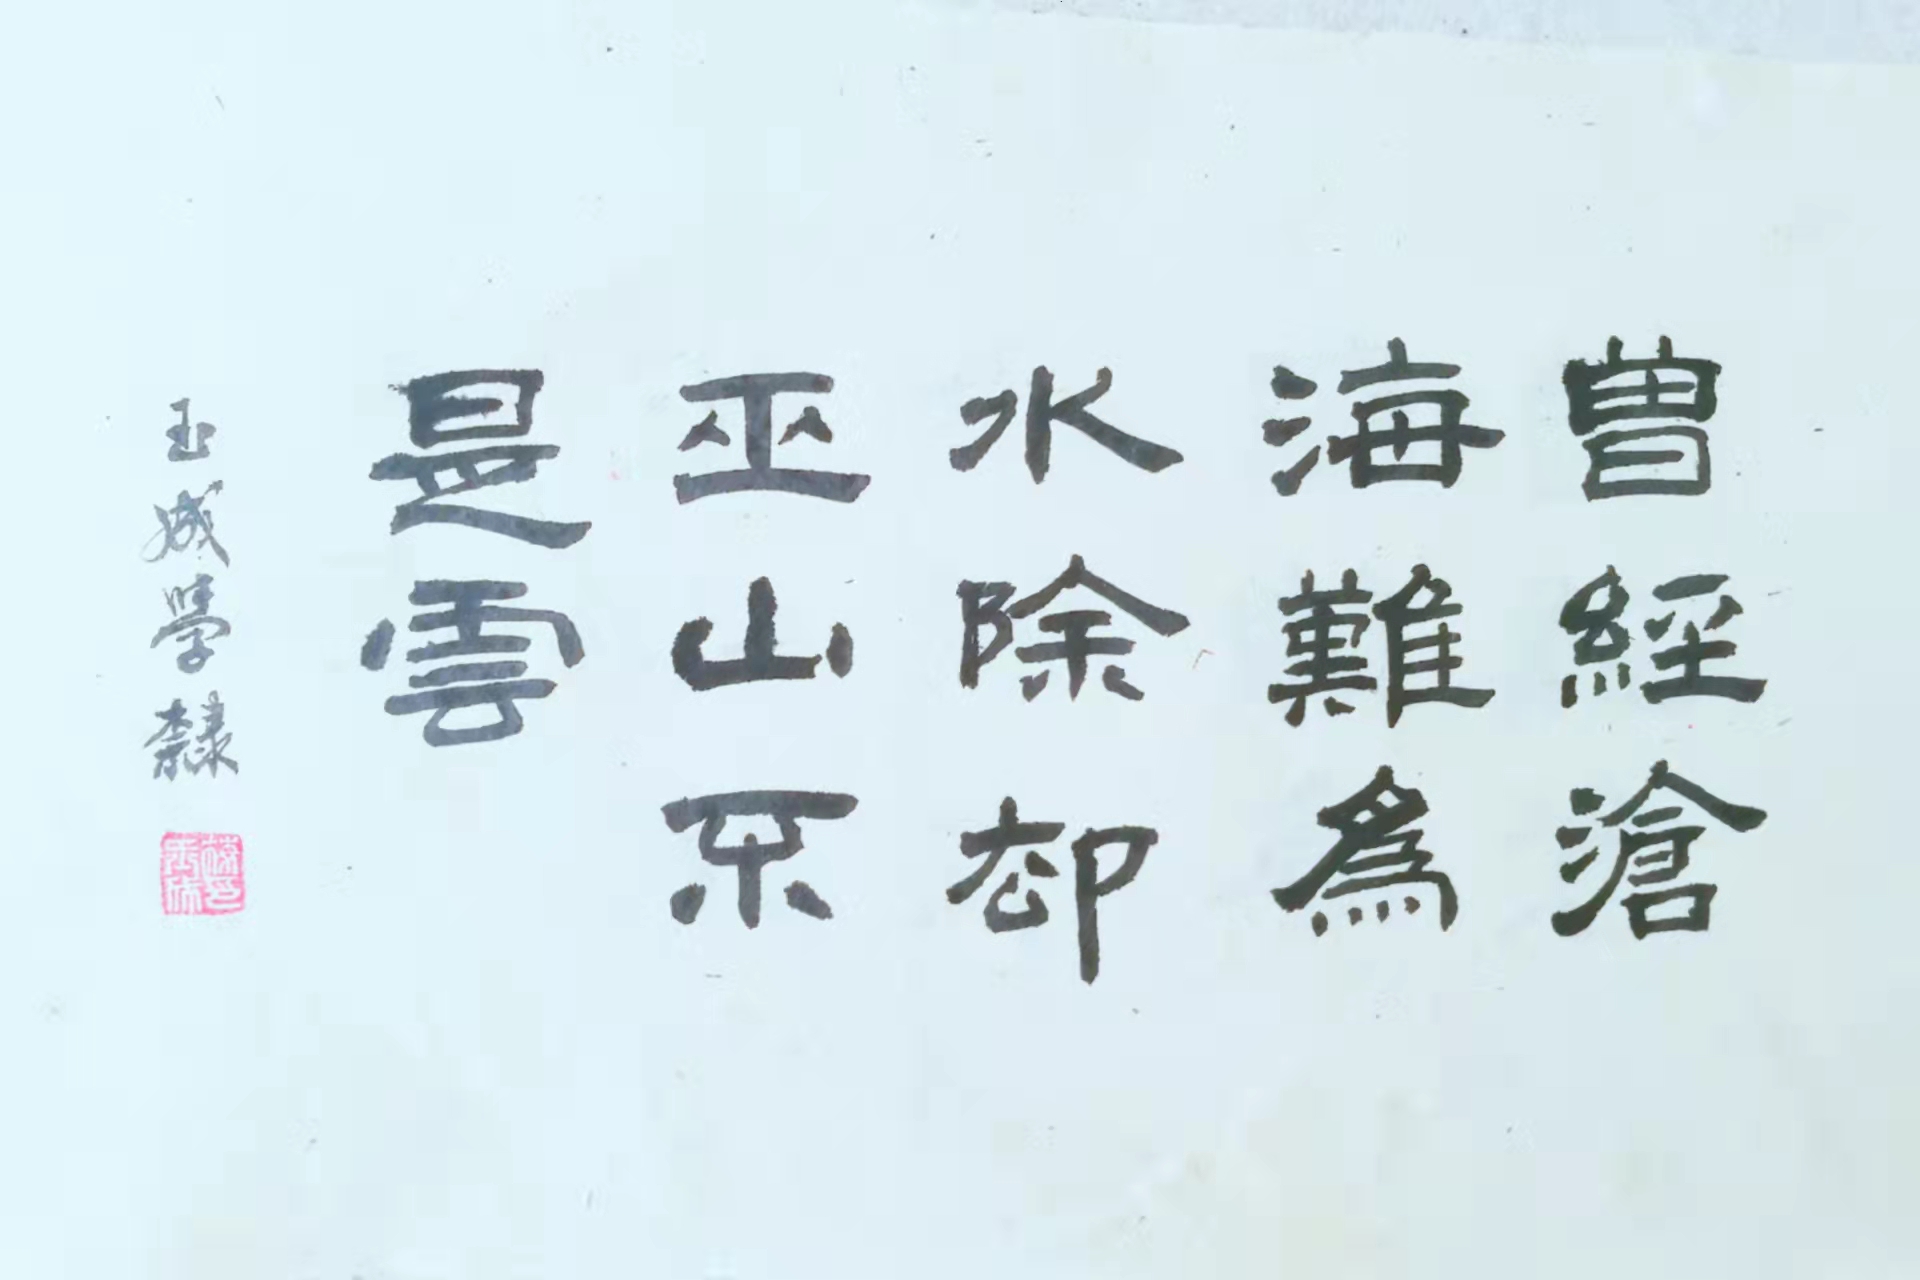 曽經滄
海難為
水除却
巫山不
是雲
玉成學隸